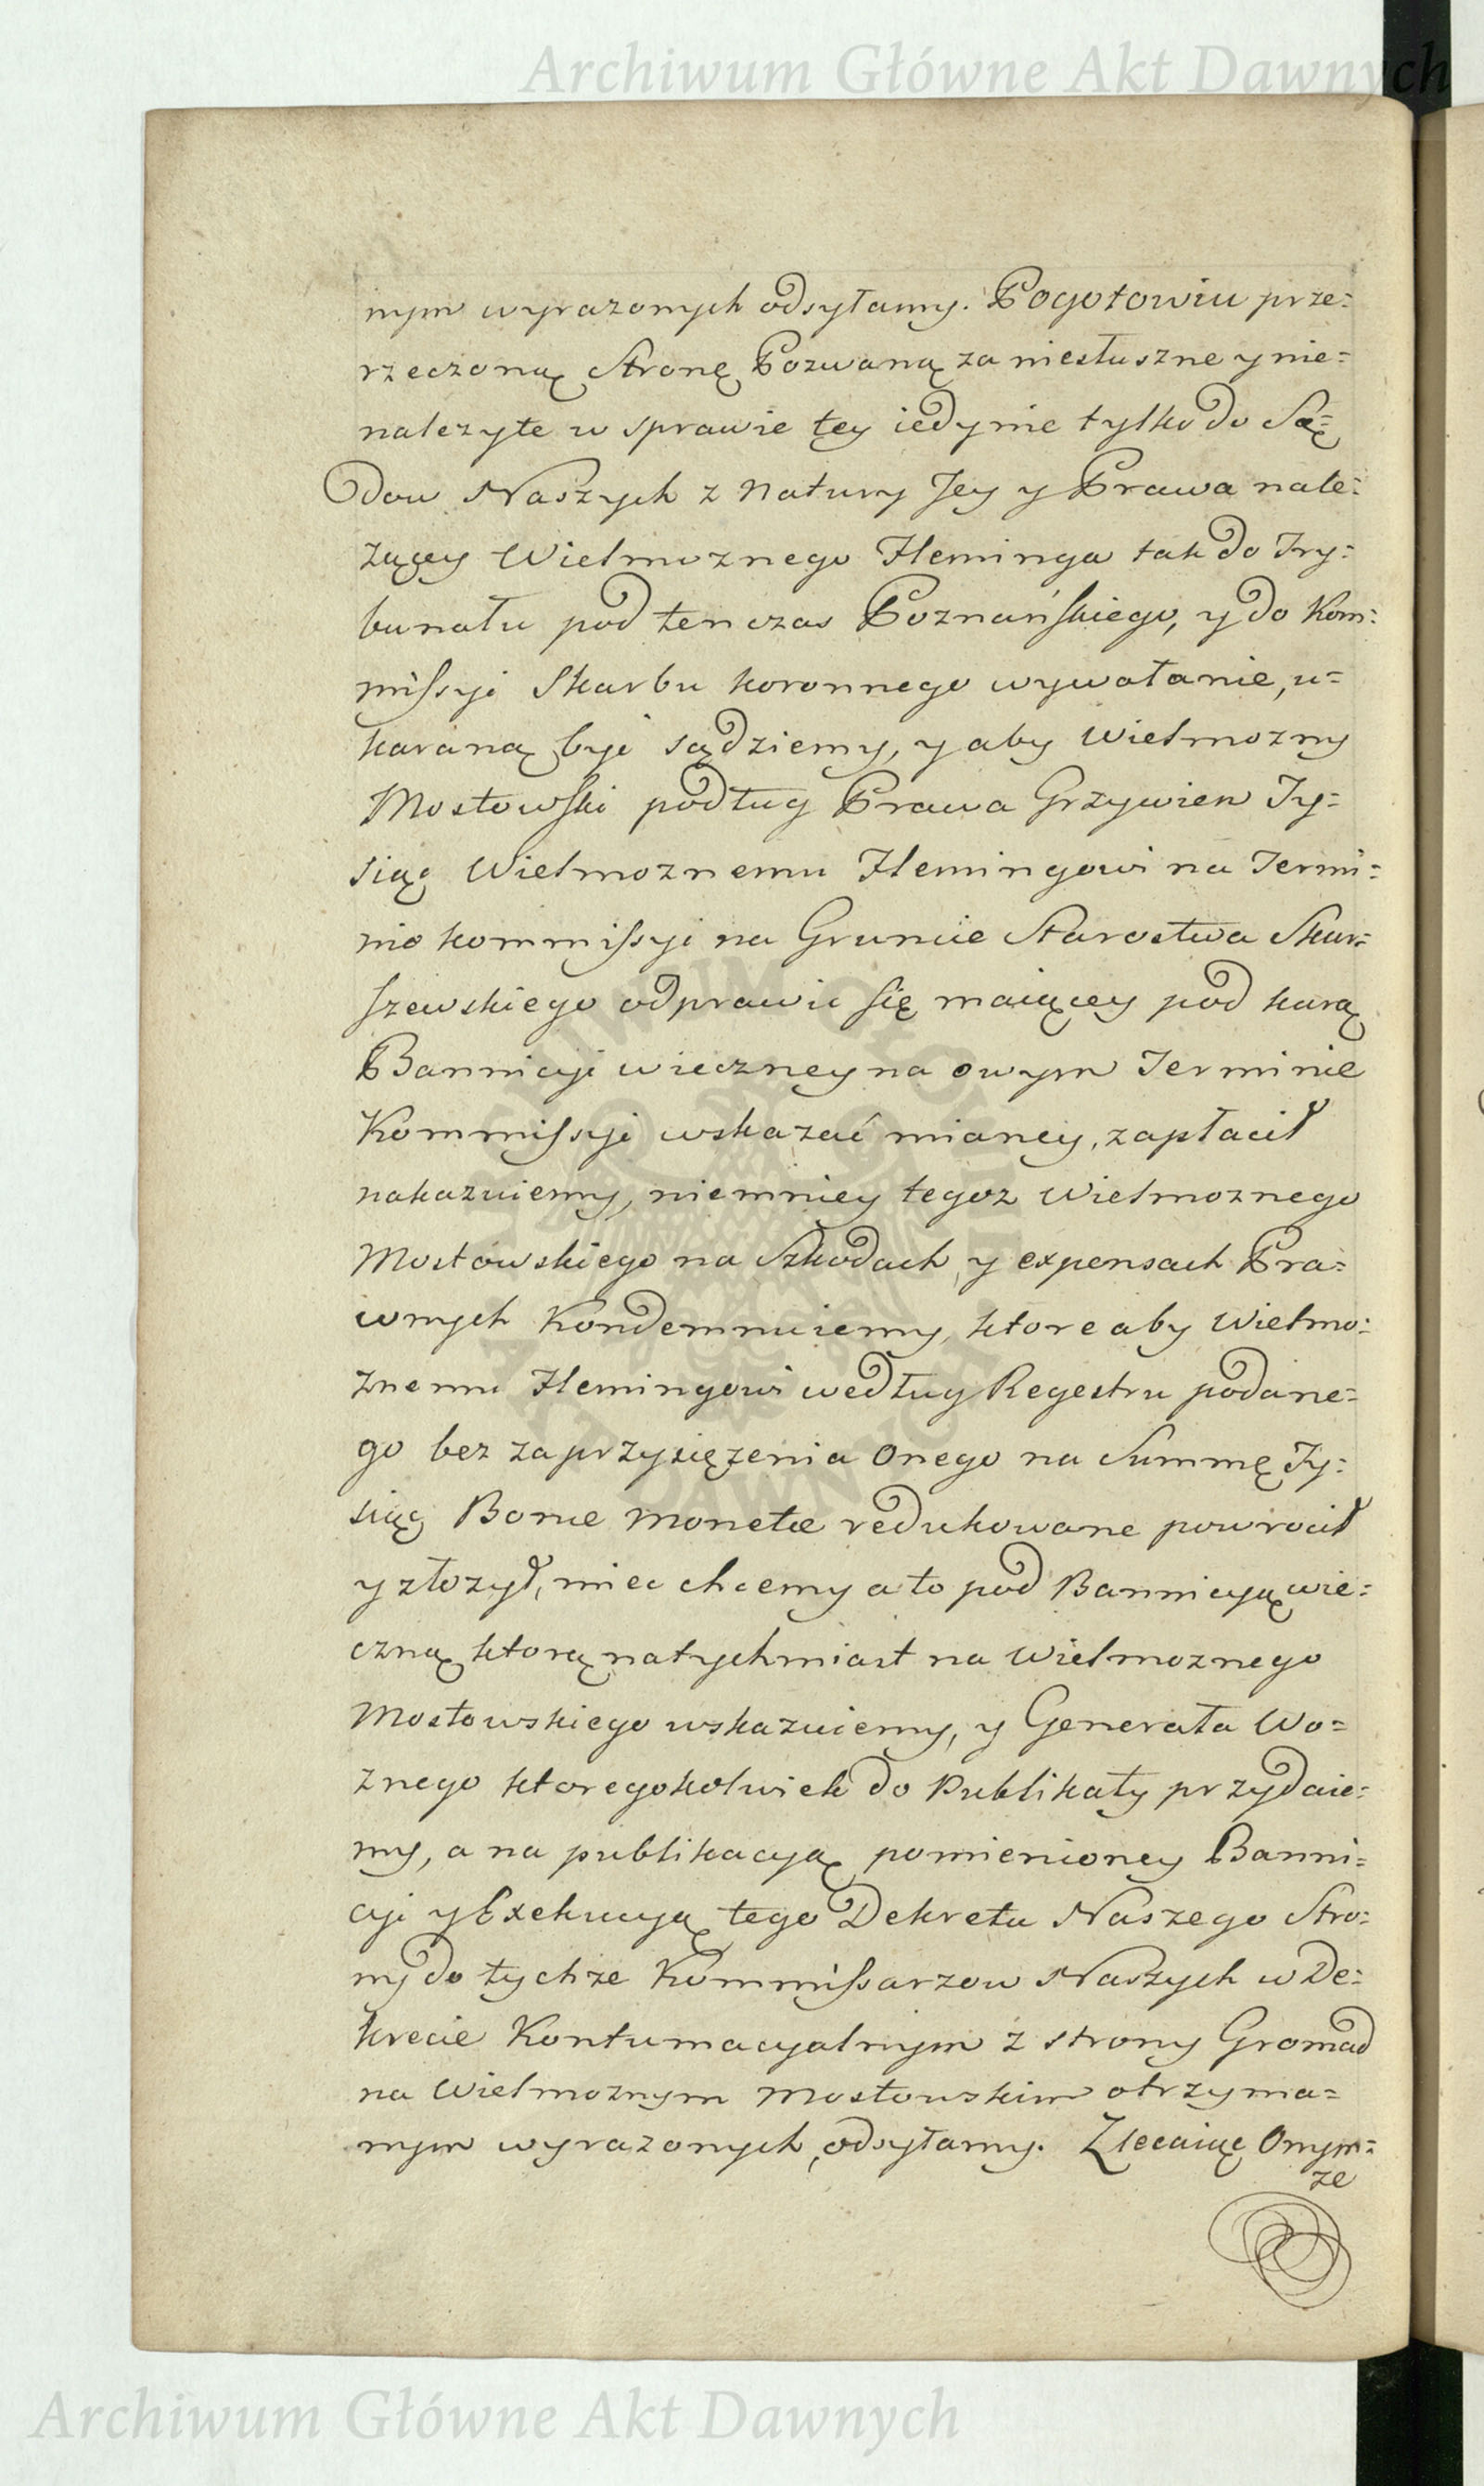 Archiwum Główne Akt Dawnych
nym wyrazonych odsyłamy. Pogotowiu prze=
rzeczoną Stronę Pozwaną za niesłuszne y nie=
nalezyte w sprawie tey iedynie tylko do Są=
dow Naszych z Natury Jey y Prawa nale=
zącey Wielmoznego Fleminga tak do Try=
bunału pod tenczas Poznańskiego, y do Kom=
missyi Skarbu koronnego wywołanie, u=
karaną byc sądziemy, y aby Wielmozny
Mostowski podług Prawa Grzywien Ty=
siąc Wielmoznemu Flemingowi na Termi=
nie kommissyi na Gruncie Starostwa Skar=
szewskiego odprawic się maiącey pod karą
Bannicyi wieczney na owym Terminie
Kommissyi wskazać mianey, zapłacił
nakazuiemy, niemniey tegoz Wielmoznego
Mostowskiego na Szkodach y expensach Pra=
wnych Kondemnuiemy, ktore aby Wielmo=
znemu Flemingowi według Regestru podane=
go bez zaprzysięzenia onego na Summę Ty=
siąc Bonæ Monetæ redukowane powrocił
y złozył, miec chcemy a to pod Bannicyą wie=
czną ktorą natychmiast na Wielmoznego
Mostowskiego wskazuiemy, y Generała Wo=
znego ktoregokolwiek do Publikaty przydaie=
my, a na publikacyą pomienioney Banni=
cyi y Exekucyą tego Dekretu Naszego Stro=
ny do tychze Kommissarzow Naszych w De=
krecie Kontumacyalnym z strony Gromad
na Wielmoznym Mostowskim otrzyma=
nym wyrazonych odsyłamy. Zlecaiąc Onym=
ze
Archiwum Główne Akt Dawnych